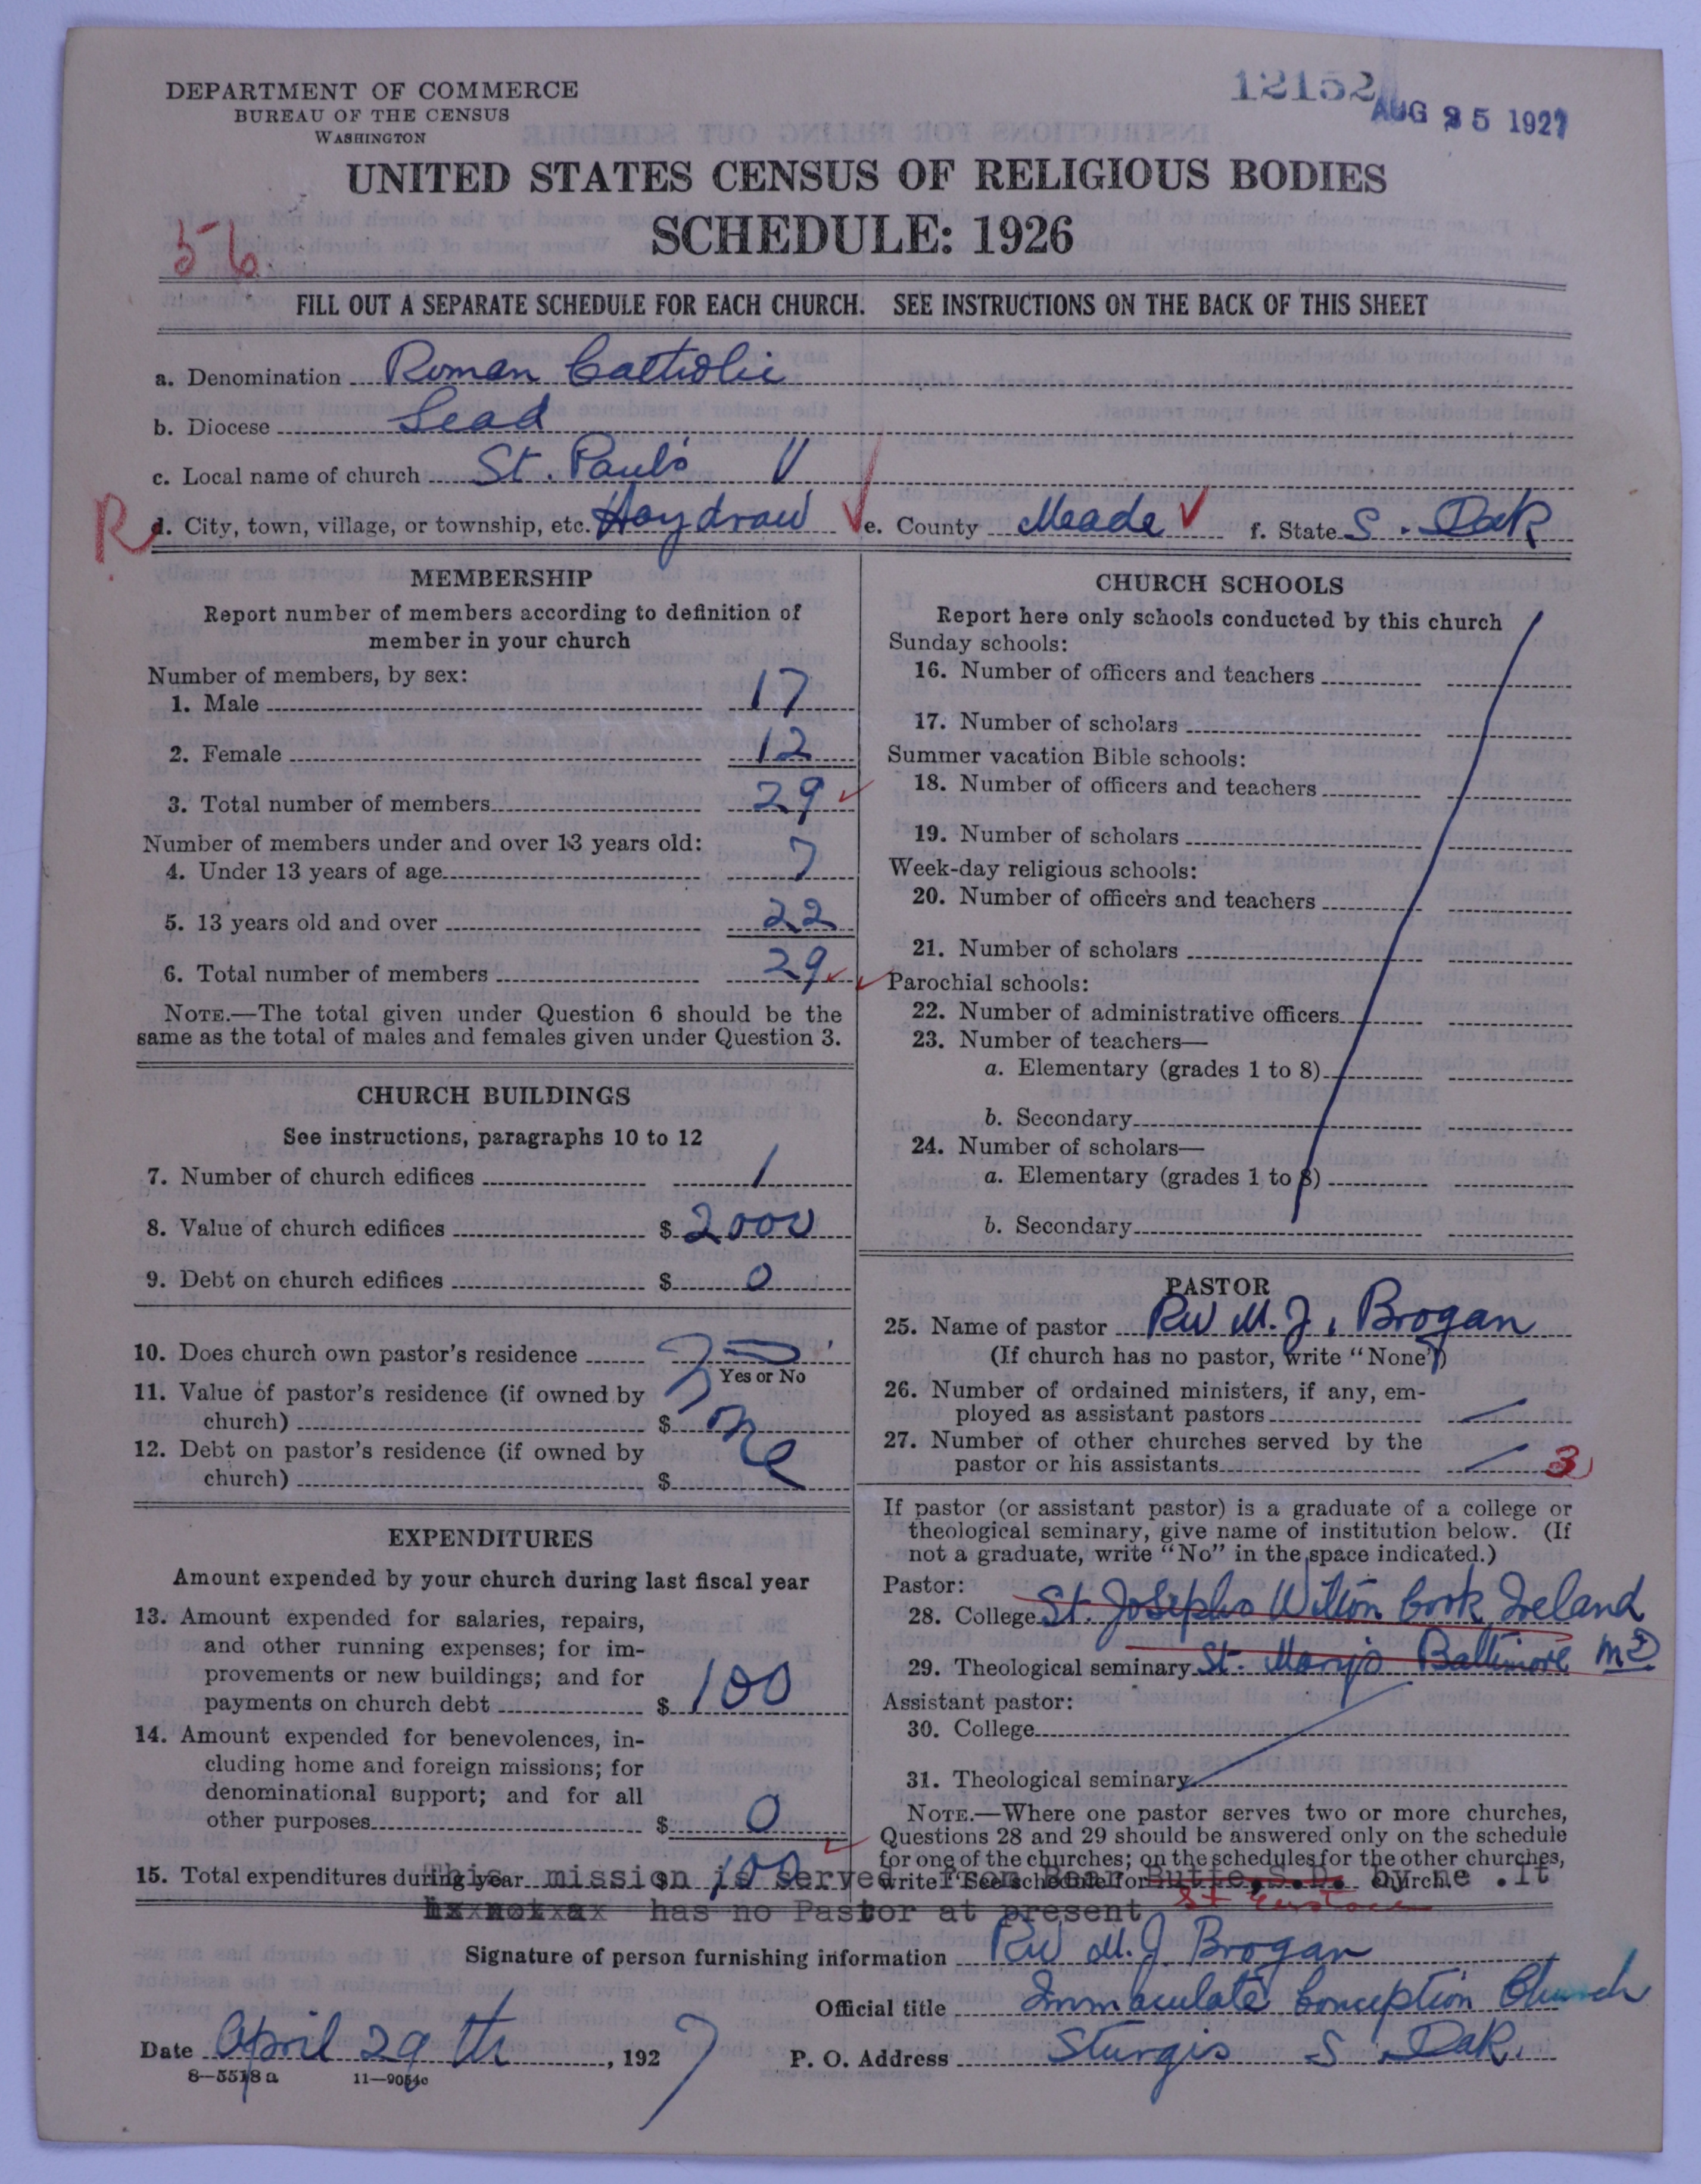 DEPARTMENT OF COMMERCE
BUREAU OF THE CENSUS
WASHINGTON
12152
AUG 25 1927
UNITED STATES CENSUS OF RELIGIOUS BODIES
SCHEDULE: 1926
56
FILL OUT A SEPARATE SCHEDULE FOR EACH CHURCH. SEE INSTRUCTIONS ON THE BACK OF THIS SHEET
a. Denomination Roman Catholic
b. Diocese Lead
c. Local name of church St. Paul's
R d. City, town, village, or township, etc. Haydraw e. County Meade f. State S. Dak
MEMBERSHIP
Report number of members according to definition of
member in your church
Number of members, by sex:
1. Male 17
2. Female 12
3. Total number of members 29
Number of members under and over 13 years old:
4. Under 13 years of age 7
5. 13 years old and over 22
6. Total number of members 29
NOTE.—The total given under Question 6 should be the
same as the total of males and females given under Question 3.
CHURCH BUILDINGS
See instructions, paragraphs 10 to 12
7. Number of church edifices 1
8. Value of church edifices $ 2000
9. Debt on church edifices $ 0
10. Does church own pastor's residence
Yes or No
11. Value of pastor's residence (if owned by
church) $
12. Debt on pastor's residence (if owned by
church) $
EXPENDITURES
Amount expended by your church during last fiscal year
13. Amount expended for salaries, repairs,
and other running expenses; for im-
provements or new buildings; and for
payments on church debt $ 100
14. Amount expended for benevolences, in-
cluding home and foreign missions; for
denominational support; and for all
other purposes $ 0
15. Total expenditures during year $ 100
CHURCH SCHOOLS
Report here only schools conducted by this church
Sunday schools:
16. Number of officers and teachers
17. Number of scholars
Summer vacation Bible schools:
18. Number of officers and teachers
19. Number of scholars
Week-day religious schools:
20. Number of officers and teachers
21. Number of scholars
Parochial schools:
22. Number of administrative officers
23. Number of teachers—
a. Elementary (grades 1 to 8)
b. Secondary
24. Number of scholars—
a. Elementary (grades 1 to 8)
b. Secondary
PASTOR
25. Name of pastor Rev M. J. Brogan
(If church has no pastor, write "None")
26. Number of ordained ministers, if any, em-
ployed as assistant pastors
27. Number of other churches served by the
pastor or his assistants 3
If pastor (or assistant pastor) is a graduate of a college or
theological seminary, give name of institution below. (If
not a graduate, write "No" in the space indicated.)
Pastor:
28. College St. Josephs Wilton Cork Ireland
29. Theological seminary St. Mary's Baltimore Md
Assistant pastor:
30. College
31. Theological seminary
NOTE.—Where one pastor serves two or more churches,
Questions 28 and 29 should be answered only on the schedule
for one of the churches; on the schedules for the other churches,
write "See schedule for church."
This mission is served from Bear Butte, S.D. by me . It
has no Pastor at present
Signature of person furnishing information Rev M. J. Brogan
Official title Immaculate Conception Church
Date April 29th, 1927 P. O. Address Sturgis S. Dak.
8—5518 a 11—9054c